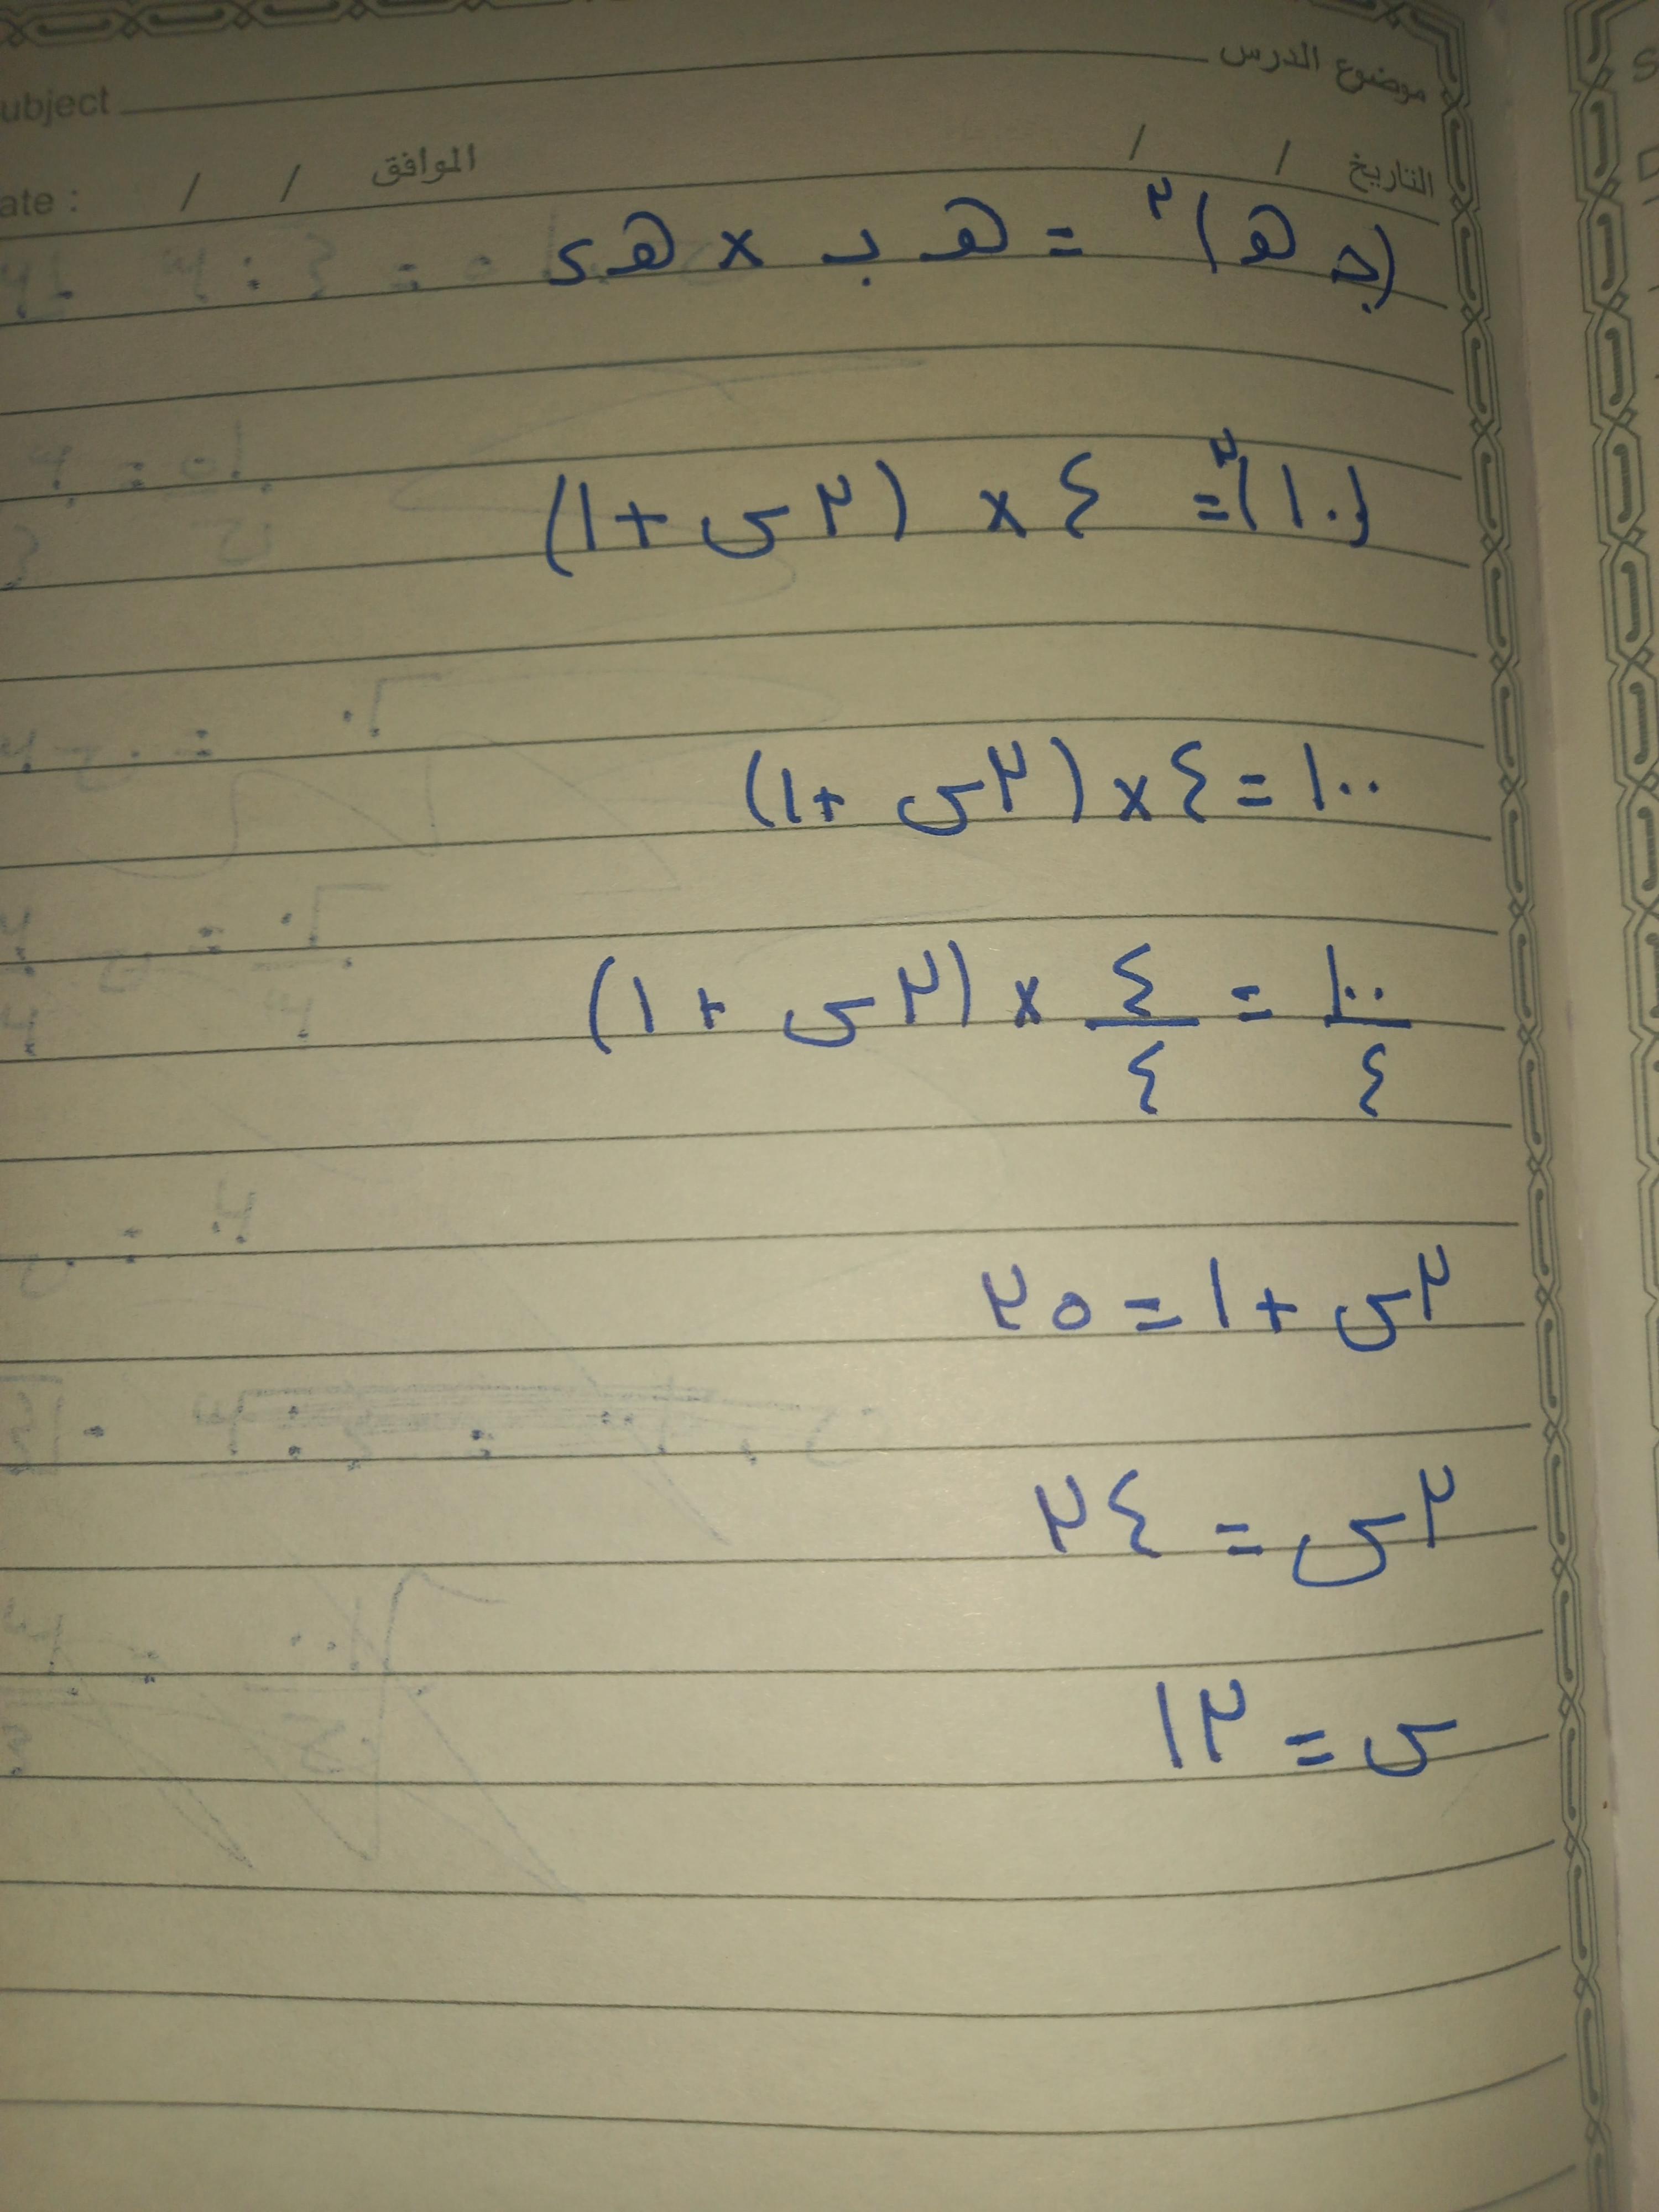 موضوع الدرس ubject
التاريخ / / الموافق / / ate :
(جـ هـ)٢ = هـ ب × هـ د
(١٠)٢ = ٤ × (٢س + ١)
١٠٠ = ٤ × (٢س + ١)
١٠٠/٤ = ٤/٤ × (٢س + ١)
٢س + ١ = ٢٥
٢س = ٢٤
س = ١٢